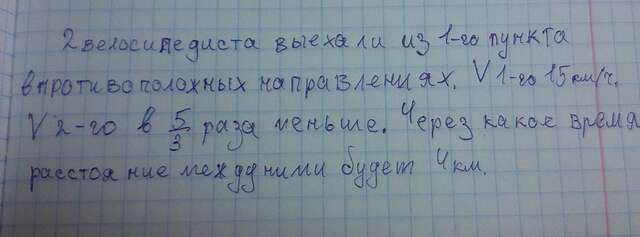 2 велосипедиста выехали из 1-го пункта
в противоположных направлениях. V 1-го 15 км/ч.
V 2-го в 5/3 раза меньше. Через какое время
расстояние между ними будет 4 км.